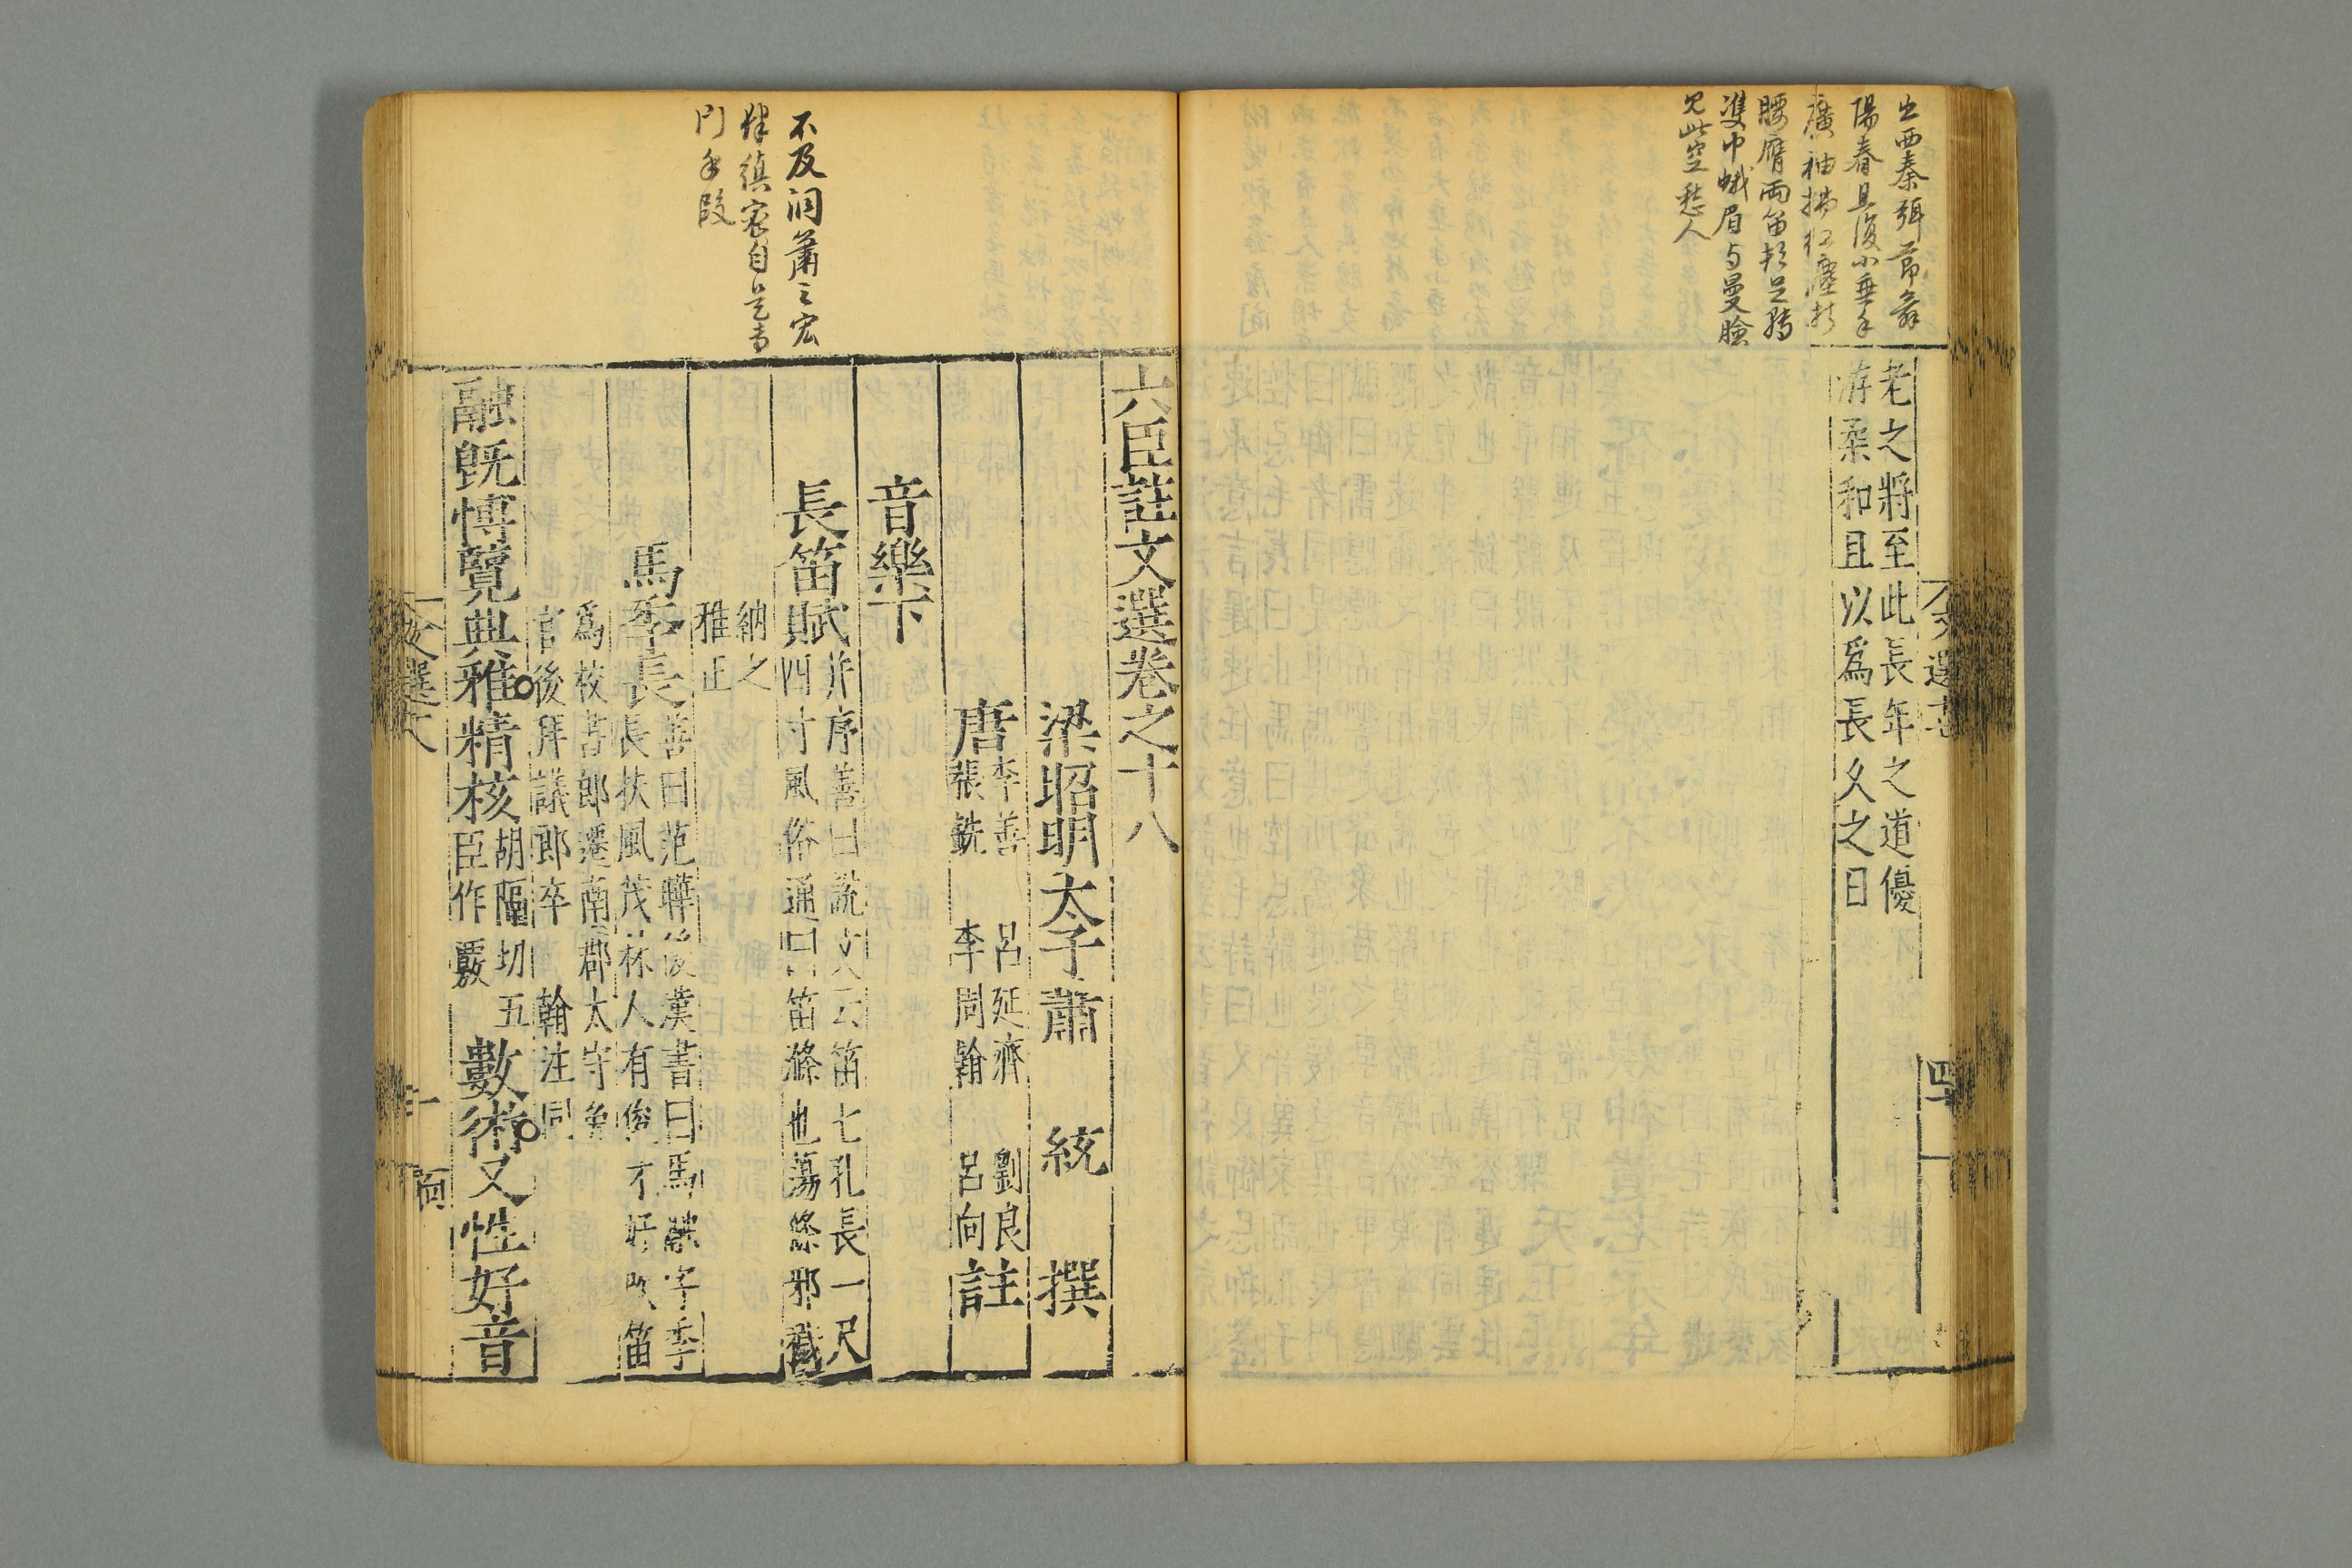 出西秦弭節舞
陽春且復小垂手
廣袖拂紅塵折
腰膺兩笛頓足轉
雙巾蛾眉与曼臉
見此空愁人
老之將至此長年之道優
游柔和且以爲長久之日
六臣註文選卷之十八
梁昭明太子蕭 統 撰
唐
李善 呂延濟 劉良
張銑 李周翰 呂向
註
音樂下
長笛賦
并序善曰說文云笛七孔長一尺
四寸風俗通曰笛滌也蕩滌邪穢
納之
雅正
馬季長
善曰范曄後漢書曰馬融字季
長扶風茂林人有俊才好吹笛
爲校書郎遷南郡太守免
官後拜議郎卒 翰注同
融旣博覽典雅精核
胡隔切五
臣作覈
數術又性好音
文選
不及洞簫之宏
肆縝密自是専
門手段